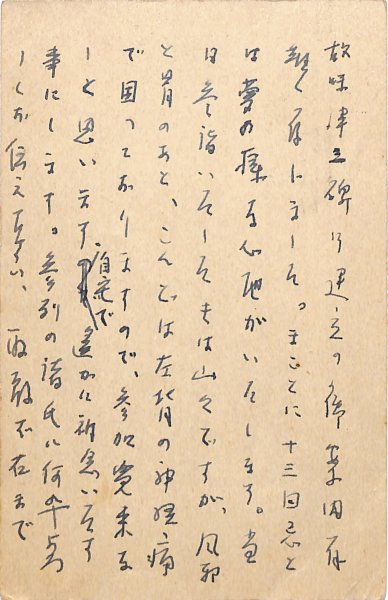 故味津三碑 建立の御案内有
難く存じました。まことに十三回忌と
は夢の様な心地がいたします。当
日参詣いたしたきは山々ですが、風邪
と胃のあと、こんどは左背の神経痛
で困っておりますので、参加覚束な
しと思います 自宅で遥かに祈念いたす
事にします。参列の諸氏に何卒よろ
しくお伝え下さい、取敢不右まで